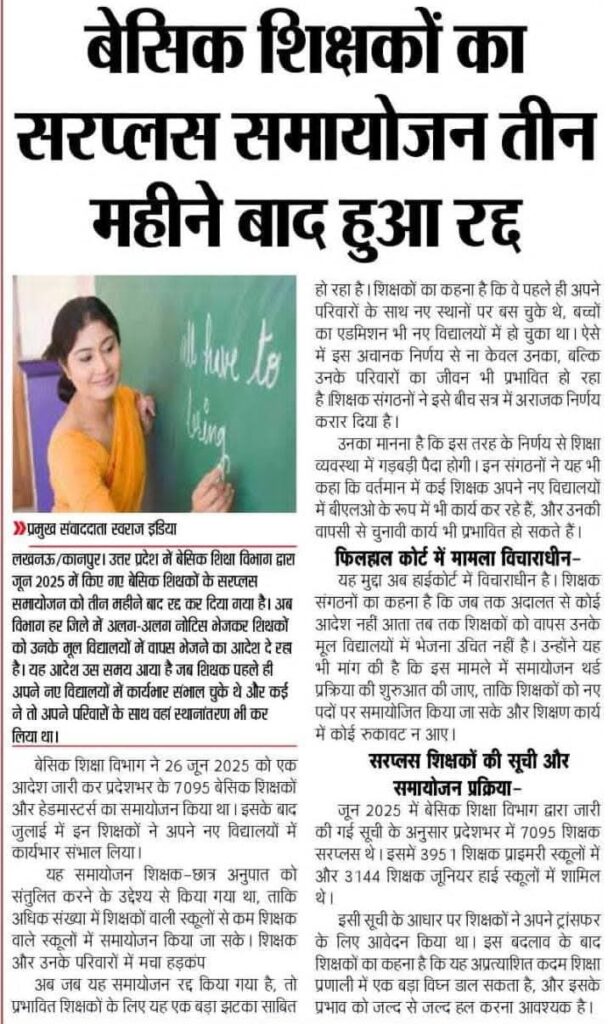 बेसिक शिक्षकों का
सरप्लस समायोजन तीन
महीने बाद हुआ रद्द
all have to
bring
प्रमुख संवाददाता स्वराज इंडिया
लखनऊ/कानपुर। उत्तर प्रदेश में बेसिक शिक्षा विभाग द्वारा
जून 2025 में किए गए बेसिक शिक्षकों के सरप्लस
समायोजन को तीन महीने बाद रद्द कर दिया गया है। अब
विभाग हर जिले में अलग-अलग नोटिस भेजकर शिक्षकों
को उनके मूल विद्यालयों में वापस भेजने का आदेश दे रहा
है। यह आदेश उस समय आया है जब शिक्षक पहले ही
अपने नए विद्यालयों में कार्यभार संभाल चुके थे और कई
ने तो अपने परिवारों के साथ वहां स्थानांतरण भी कर
लिया था।
बेसिक शिक्षा विभाग ने 26 जून 2025 को एक
आदेश जारी कर प्रदेशभर के 7095 बेसिक शिक्षकों
और हेडमास्टर्स का समायोजन किया था। इसके बाद
जुलाई में इन शिक्षकों ने अपने नए विद्यालयों में
कार्यभार संभाल लिया।
यह समायोजन शिक्षक-छात्र अनुपात को
संतुलित करने के उद्देश्य से किया गया था, ताकि
अधिक संख्या में शिक्षकों वाली स्कूलों से कम शिक्षक
वाले स्कूलों में समायोजन किया जा सके। शिक्षक
और उनके परिवारों में मचा हड़कंप
अब जब यह समायोजन रद्द किया गया है, तो
प्रभावित शिक्षकों के लिए यह एक बड़ा झटका साबित
हो रहा है। शिक्षकों का कहना है कि वे पहले ही अपने
परिवारों के साथ नए स्थानों पर बस चुके थे, बच्चों
का एडमिशन भी नए विद्यालयों में हो चुका था। ऐसे
में इस अचानक निर्णय से ना केवल उनका, बल्कि
उनके परिवारों का जीवन भी प्रभावित हो रहा
है।शिक्षक संगठनों ने इसे बीच सत्र में अराजक निर्णय
करार दिया है।
उनका मानना है कि इस तरह के निर्णय से शिक्षा
व्यवस्था में गड़बड़ी पैदा होगी। इन संगठनों ने यह भी
कहा कि वर्तमान में कई शिक्षक अपने नए विद्यालयों
में बीएलओ के रूप में भी कार्य कर रहे हैं, और उनकी
वापसी से चुनावी कार्य भी प्रभावित हो सकते हैं।
फिलहाल कोर्ट में मामला विचाराधीन-
यह मुद्दा अब हाईकोर्ट में विचाराधीन है। शिक्षक
संगठनों का कहना है कि जब तक अदालत से कोई
आदेश नहीं आता तब तक शिक्षकों को वापस उनके
मूल विद्यालयों में भेजना उचित नहीं है। उन्होंने यह
भी मांग की है कि इस मामले में समायोजन थर्ड
प्रक्रिया की शुरुआत की जाए, ताकि शिक्षकों को नए
पदों पर समायोजित किया जा सके और शिक्षण कार्य
में कोई रुकावट न आए।
सरप्लस शिक्षकों की सूची और
समायोजन प्रक्रिया-
जून 2025 में बेसिक शिक्षा विभाग द्वारा जारी
की गई सूची के अनुसार प्रदेशभर में 7095 शिक्षक
सरप्लस थे। इसमें 3951 शिक्षक प्राइमरी स्कूलों में
और 3144 शिक्षक जूनियर हाई स्कूलों में शामिल
थे।
इसी सूची के आधार पर शिक्षकों ने अपने ट्रांसफर
के लिए आवेदन किया था। इस बदलाव के बाद
शिक्षकों का कहना है कि यह अप्रत्याशित कदम शिक्षा
प्रणाली में एक बड़ा विघ्न डाल सकता है, और इसके
प्रभाव को जल्द से जल्द हल करना आवश्यक है।